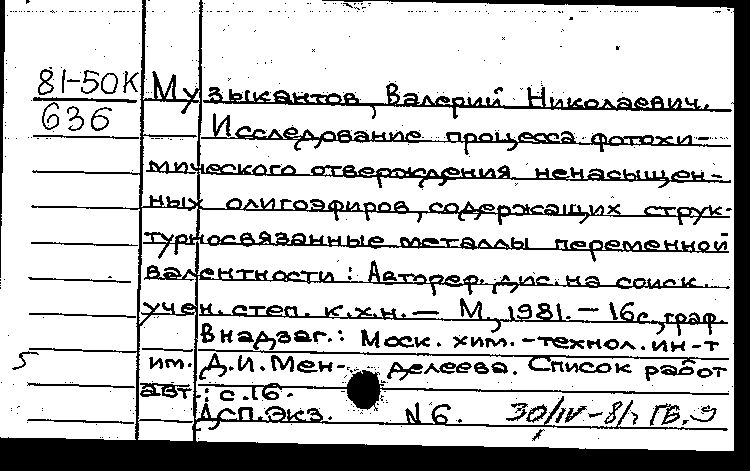 81-50К Музыкантов, Валерий Николаевич.
636 Исследование процесса фотохи-
мического отверждения ненасыщен-
ных олигоэфиров, содержащих струк-
турносвязанные металлы переменной
валентности: Автореф. дис. на соиск.
учен. степ. к.х.н. — М., 1981. — 16с., граф.
В надзаг.: Моск. хим.-технол. ин-т
5 им. Д.И. Мен- делеева. Список работ
авт.: с.16.
Дсп. Экз. N 6. 30/IV-81г